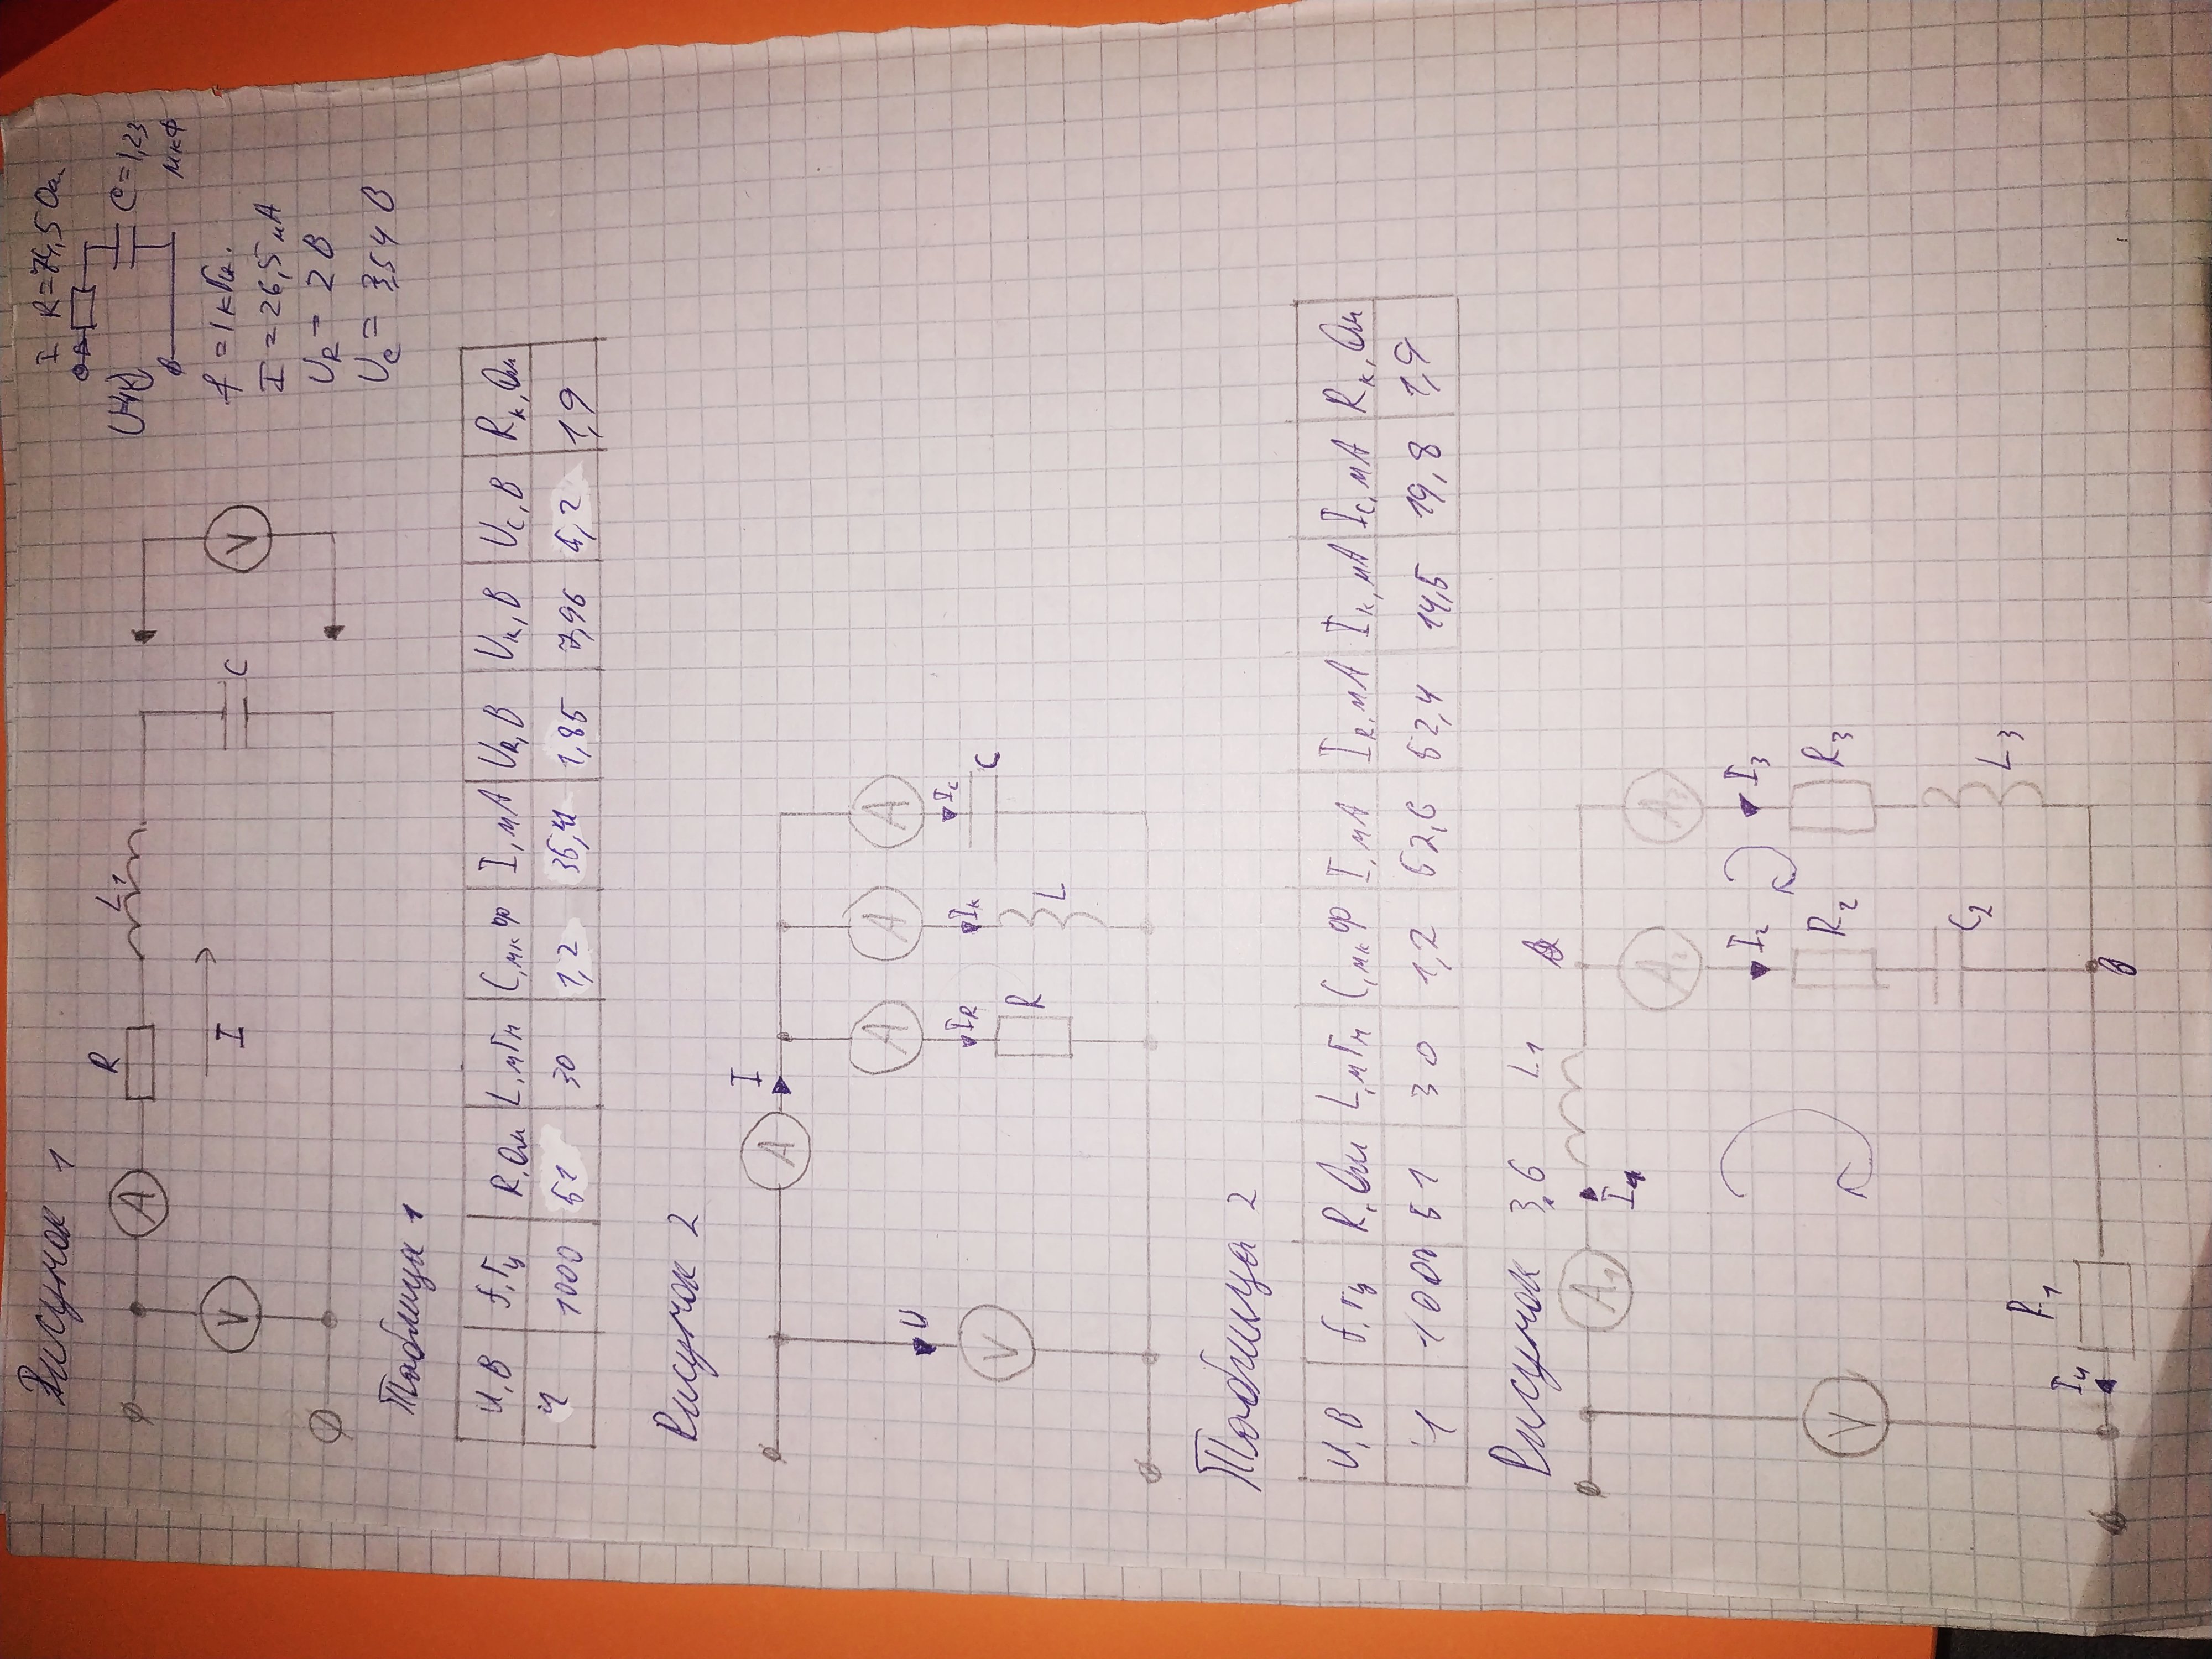 Рисунок 1
R
L1
A
V
I
C
V
I R=74,5 Ом
U=4В
C=1,23
мкФ
f = 1 кГц.
I = 26,5 мА
UR = 2 В
UC = 3,54 В
Таблица 1
U, В f, Гц R, Ом L, мГн C, мкФ I, мА UR, В Uк, В UC, В Rк, Ом
4 1000 51 30 1,2 35,4 1,85 7,96 5,2 1,9
Рисунок 2
A
I
A A A
U
IR Iк IC
V
R
L
C
Таблица 2
U, В f, Гц R, Ом L, мГн C, мкФ I, мА IR, мА Iк, мА IC, мА Rк, Ом
4 1000 51 30 1,2 52,6 52,4 14,5 19,8 1,9
Рисунок 3.б
L1
A1
I1
A2 A3
I2 I3
V
R2 R3
C2
L3
R1